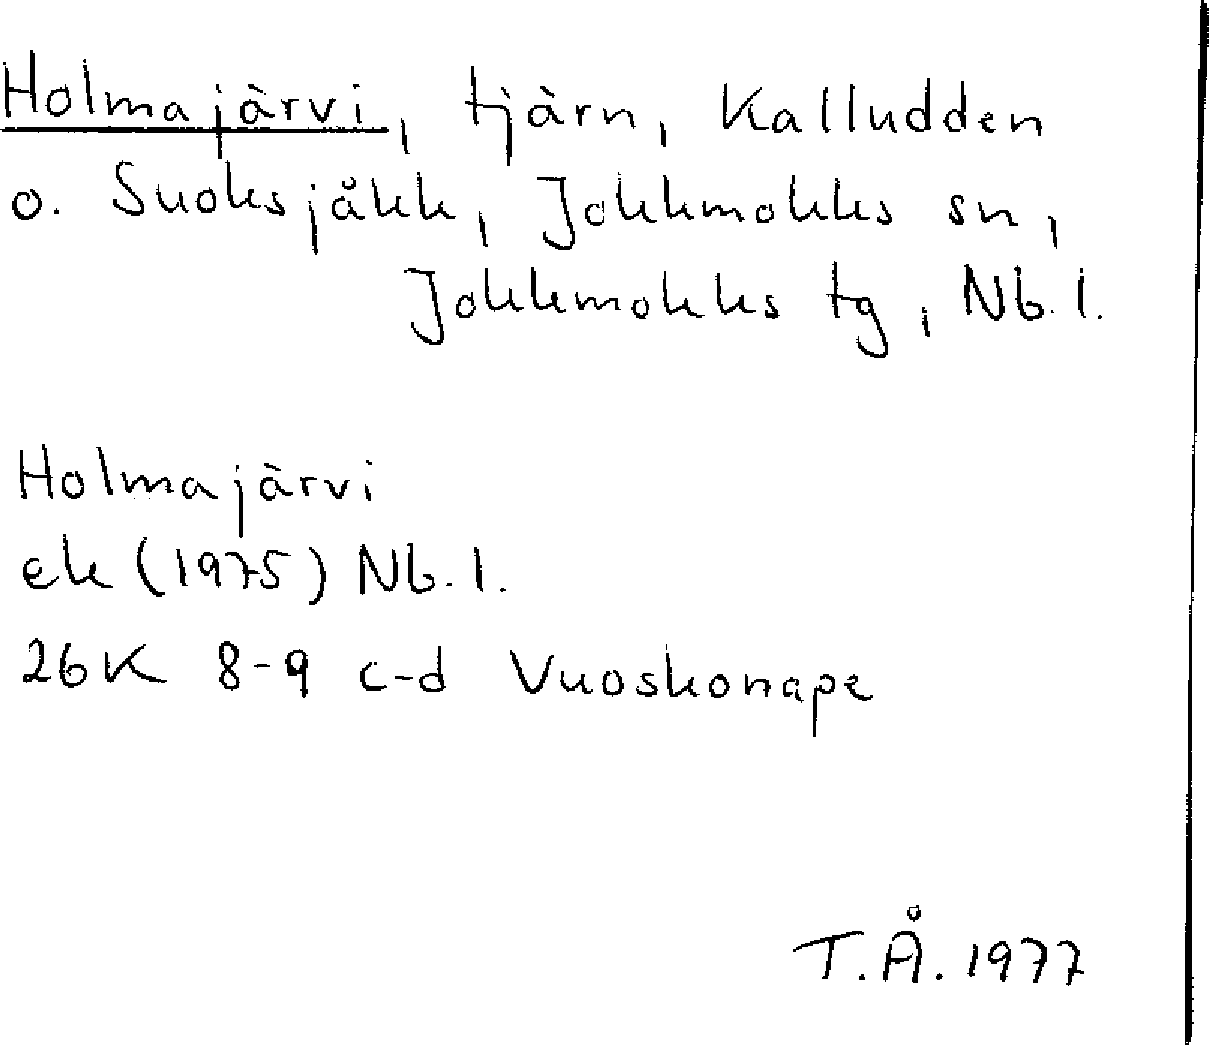 Holmajärvi, tjärn, Kalludden
o. Suoksjåkk, Jokkmokks sn,
Jokkmokks tg, Nb. l.
Holmajärvi
ek (1975) Nb. l.
26K 8-9 c-d Vuoskonape
T.Å. 1977